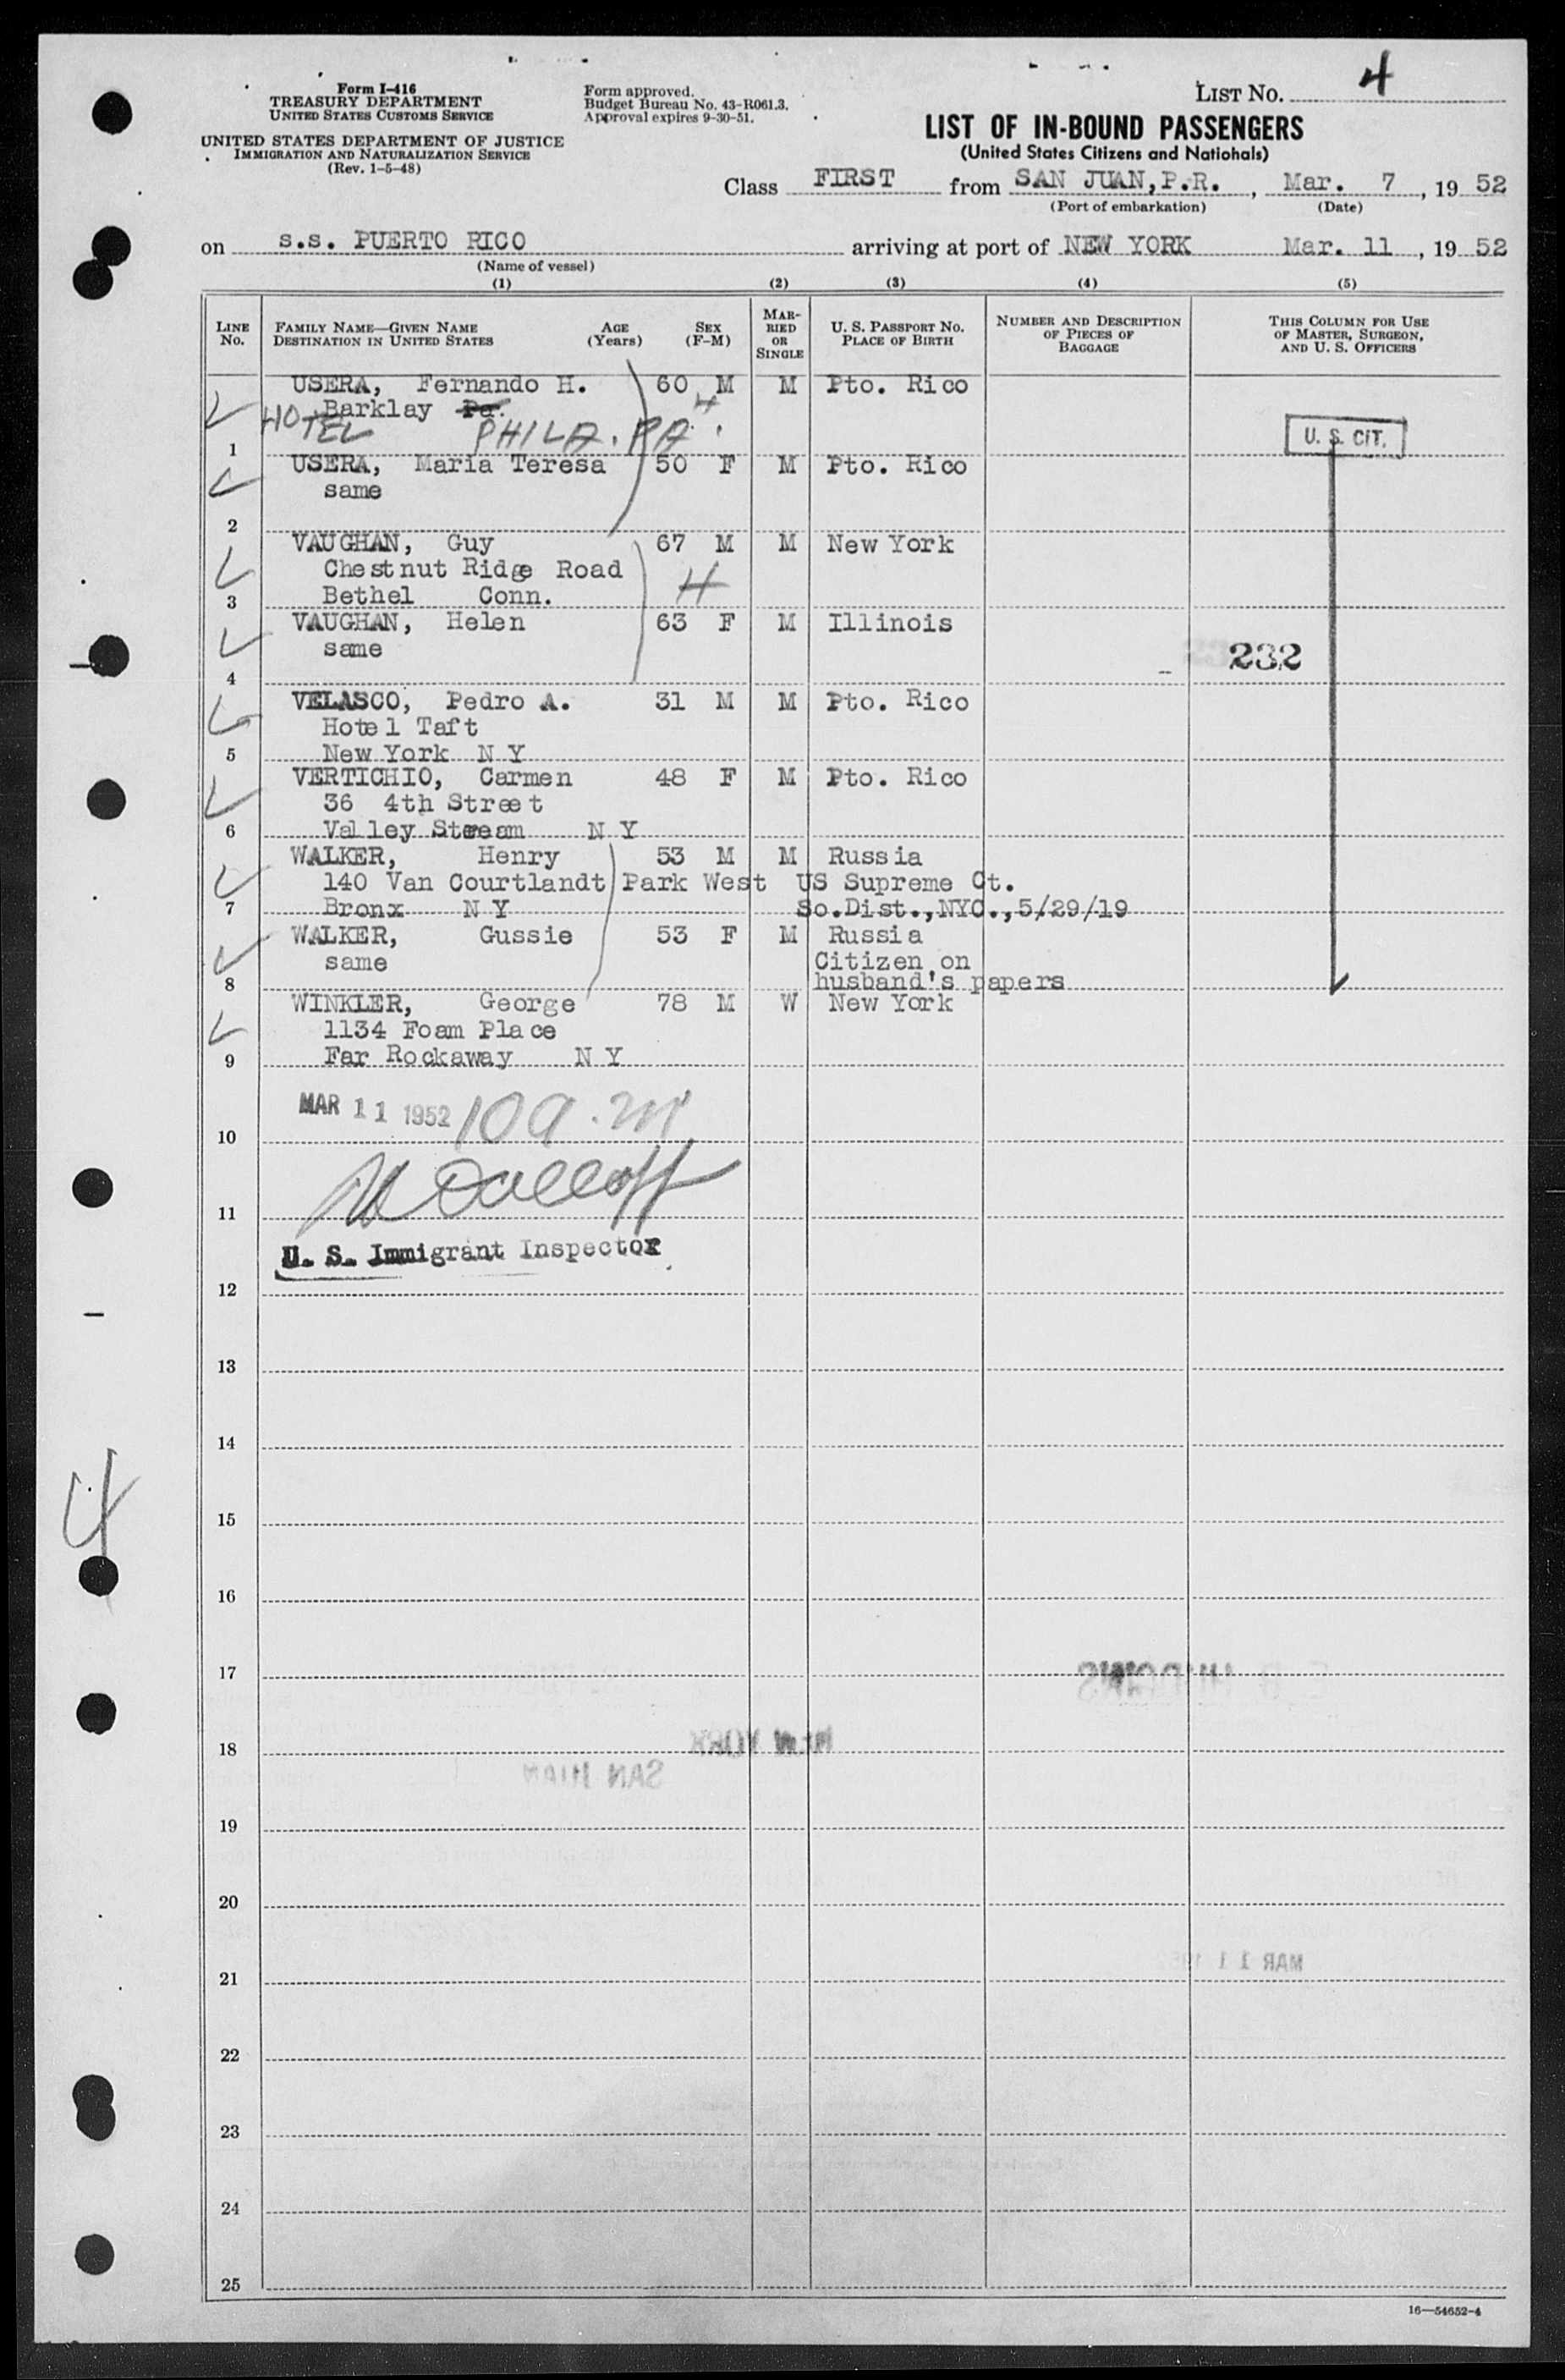 Form I-416
TREASURY DEPARTMENT
UNITED STATES CUSTOMS SERVICE
UNITED STATES DEPARTMENT OF JUSTICE
IMMIGRATION AND NATURALIZATION SERVICE
(Rev. 1-5-48)
Form approved.
Budget Bureau No. 43-R061.3.
Approval expires 9-30-51.
LIST No. 4
LIST OF IN-BOUND PASSENGERS
(United States Citizens and Nationals)
Class FIRST from SAN JUAN, P.R., Mar. 7, 19 52
(Port of embarkation) (Date)
on s.s. PUERTO RICO arriving at port of NEW YORK Mar. 11, 19 52
(Name of vessel)
(1) (2) (3) (4) (5)
LINE No. FAMILY NAME—GIVEN NAME DESTINATION IN UNITED STATES AGE (Years) SEX (F-M) MARRIED OR SINGLE U. S. PASSPORT NO. PLACE OF BIRTH NUMBER AND DESCRIPTION OF PIECES OF BAGGAGE THIS COLUMN FOR USE OF MASTER, SURGEON, AND U. S. OFFICERS
USERA, Fernando H. 60 M M Pto. Rico
HOTEL Barklay Pa. 4
1 PHILA. PA. U. S. CIT.
USERA, Maria Teresa 50 F M Pto. Rico
same
2
VAUGHAN, Guy 67 M M New York
Chestnut Ridge Road 4
3 Bethel Conn.
VAUGHAN, Helen 63 F M Illinois
same 232
4
VELASCO, Pedro A. 31 M M Pto. Rico
Hotel Taft
5 New York N Y
VERTICHIO, Carmen 48 F M Pto. Rico
36 4th Street
6 Valley Stream N Y
WALKER, Henry 53 M M Russia
140 Van Courtlandt Park West US Supreme Ct.
7 Bronx N Y So.Dist.,NYC.,5/29/19
WALKER, Gussie 53 F M Russia
same Citizen on
8 husband's papers
WINKLER, George 78 M W New York
1134 Foam Place
9 Far Rockaway N Y
MAR 11 1952 10 a.m
10
11
U. S. Immigrant Inspector
12
13
14
4
15
16
17
18 NEW YORK
SAN JUAN
19
20
MAR 11
21
22
23
24
25
16—54652-4